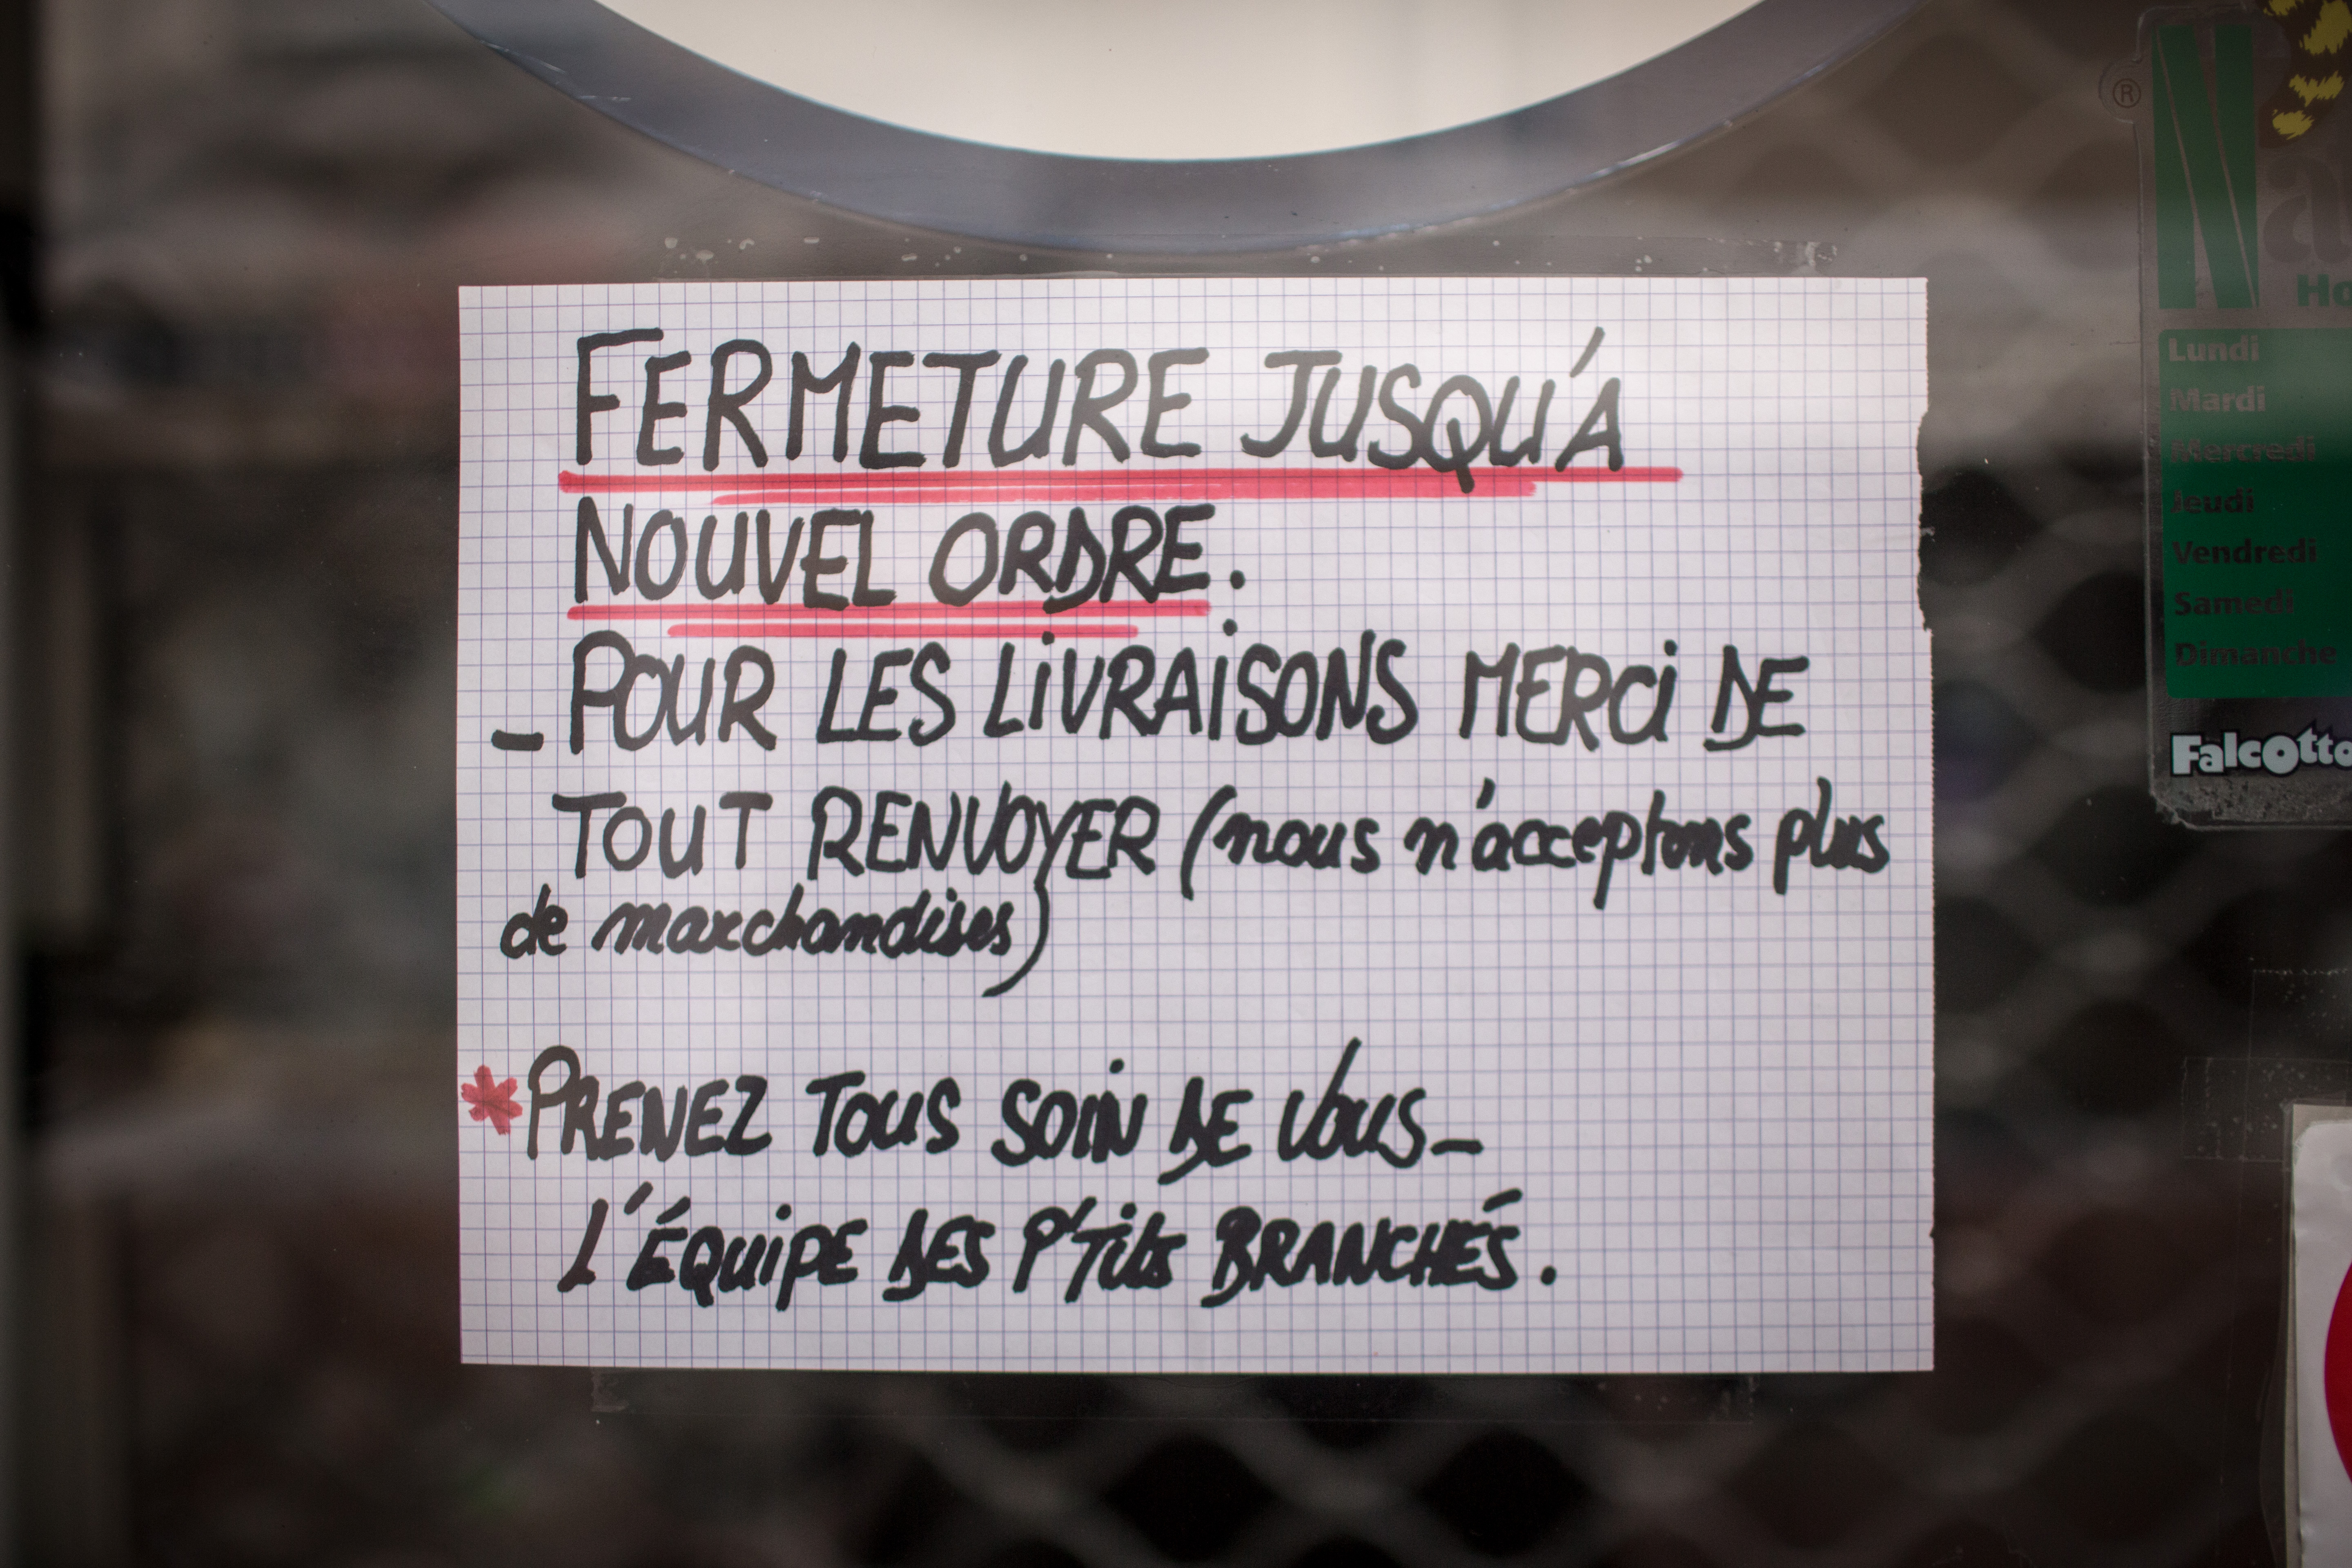 FERMETURE JUSQU'A
NOUVEL ORDRE.
- POUR LES LIVRAISONS MERCI DE
TOUT RENVOYER (nous n'acceptons plus
de marchandises)
*PRENEZ TOUS SOIN DE VOUS-
L'ÉQUIPE DES P'Tits BRANCHÉS.
®
Lundi
Mardi
Mercredi
Jeudi
Vendredi
Samedi
Dimanche
Falcotto